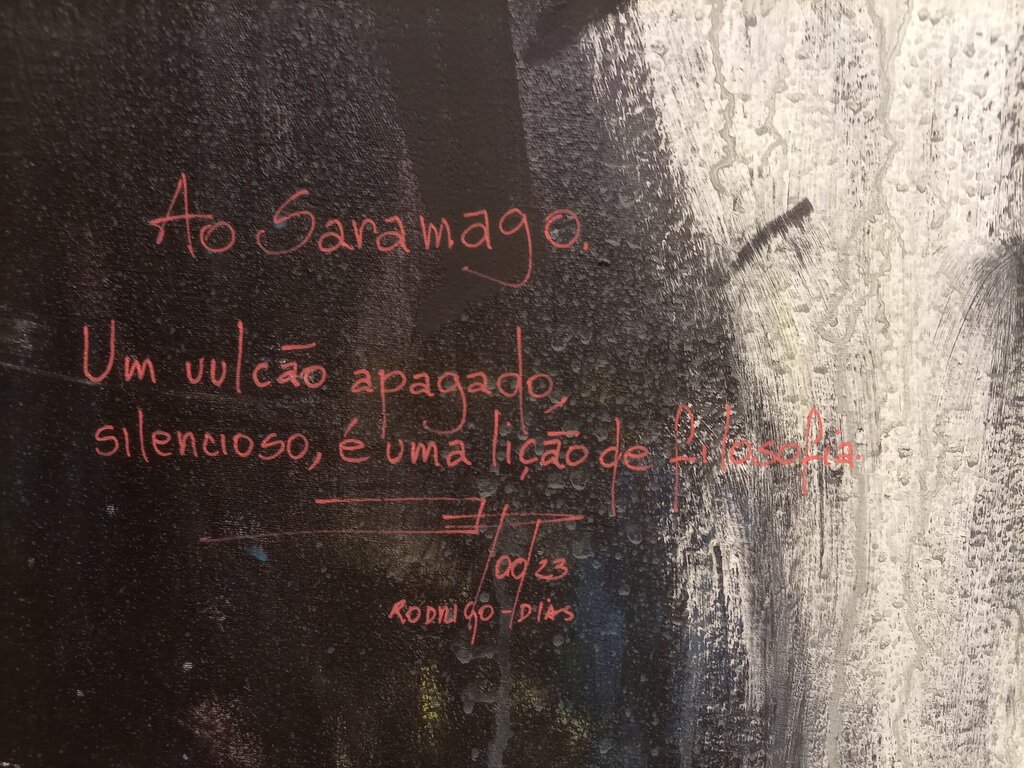 Ao Saramago.
Um vulcão apagado,
silencioso, é uma lição de filosofia.
/00/23
RODRIGO-DIAS